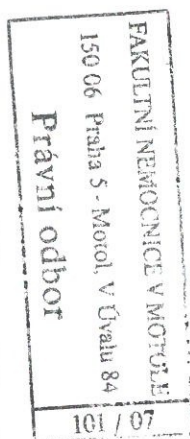 FAKULTNÍ NEMOCNICE V MOTOLE
150 06 Praha 5 - Motol, V Úvalu 84
Právní odbor
101 / 07